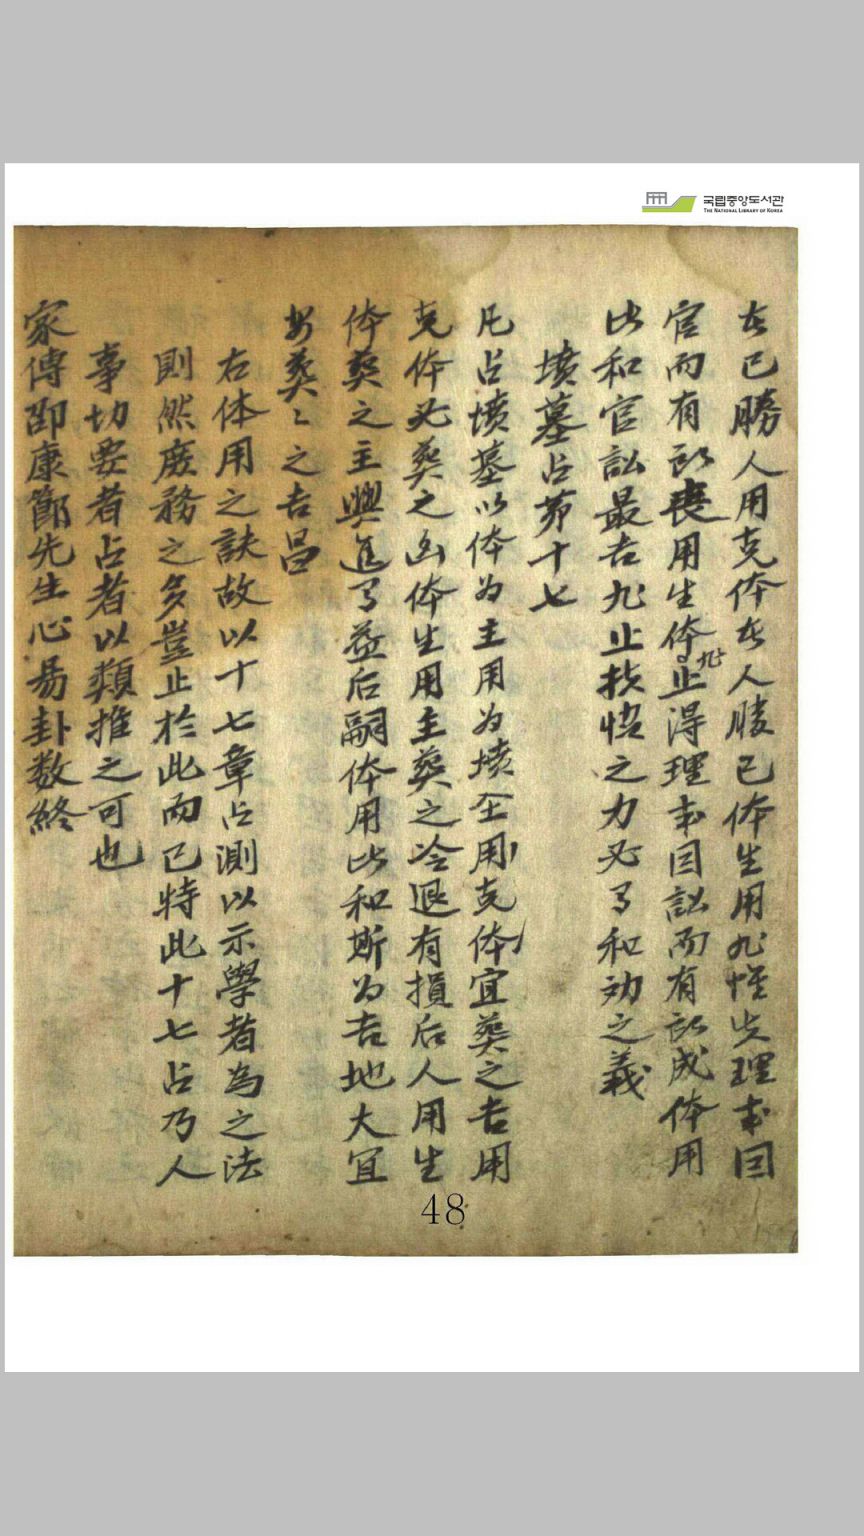 국립중앙도서관
THE NATIONAL LIBRARY OF KOREA
在己勝人用克体在人勝己体生用非惟失理或因
官而有所喪用生体非止得理或因訟而有所成体用
比和官訟最吉非止扶持之力必有和劝之義
墳墓占第十七
凡占墳墓以体为主用为墳茔用克体宜葬之吉用
克体必葬之凶体生用主葬之冷退有損后人用生
体葬之主興進有益后嗣体用比和斯为吉地大宜
葬葬之吉昌
右体用之訣故以十七章占測以示學者為之法
則然庶務之多豈止於此而已特此十七占乃人
事切要者占者以類推之可也
家傳邵康節先生心易卦数終
48